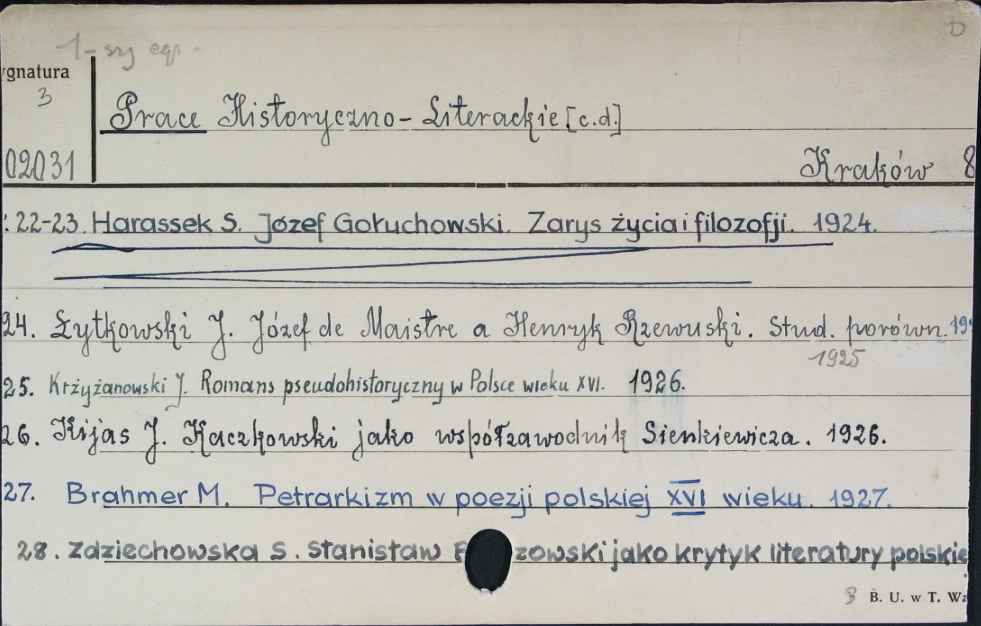 D
1-szy egz.
ygnatura
3
Prace Historyczno-Literackie [c.d.]
02031
Kraków 8
: 22-23. Harassek S. Józef Gołuchowski. Zarys życia i filozofji. 1924.
24. Żytkowski J. Józef de Maistre a Henryk Rzewuski. Stud. porówn. 19
1925
25. Krzyżanowski J. Romans pseudohistoryczny w Polsce wieku XVI. 1926.
26. Kijas J. Kaczkowski jako współzawodnik Sienkiewicza. 1926.
27. Brahmer M. Petrarkizm w poezji polskiej XVI wieku. 1927.
28. Zdziechowska S. Stanisław zowski jako krytyk literatury polskie
B. U. w T. W